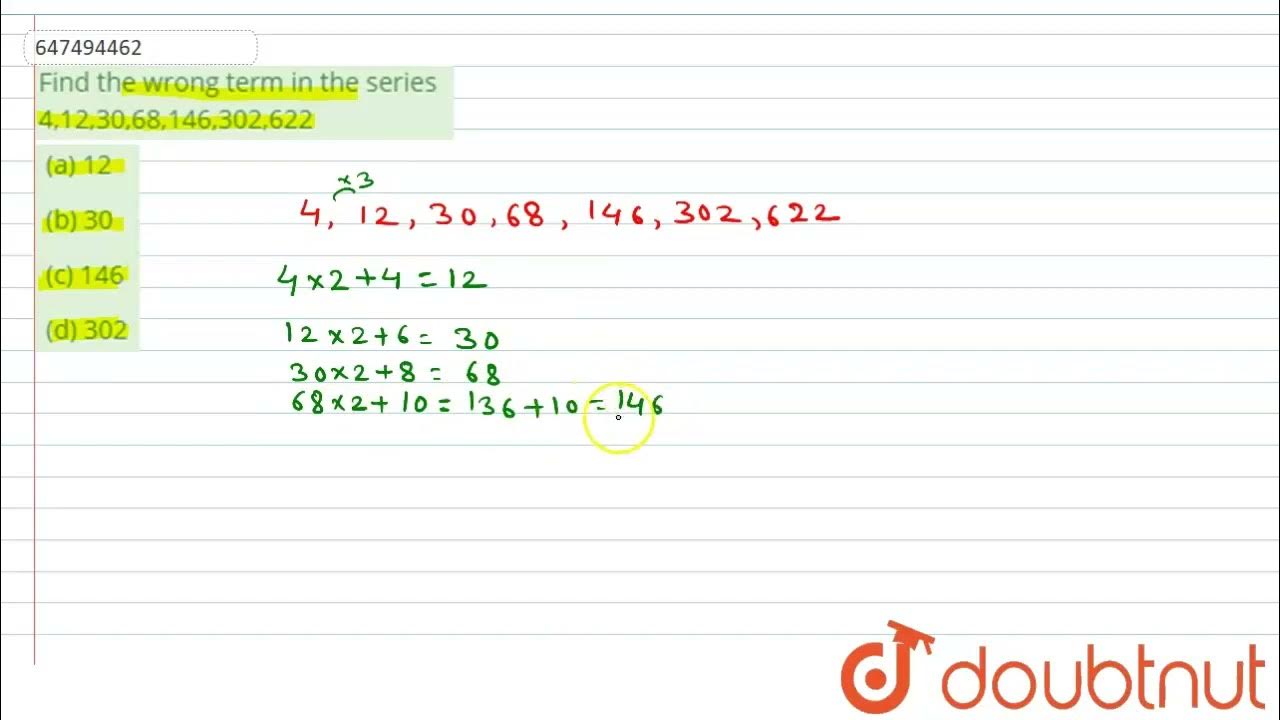 647494462
Find the wrong term in the series
4,12,30,68,146,302,622
(a) 12
(b) 30
(c) 146
(d) 302
×3
4, 12, 30, 68, 146, 302, 622
4×2+4=12
12×2+6= 30
30×2+8= 68
68×2+10=136+10=146
doubtnut